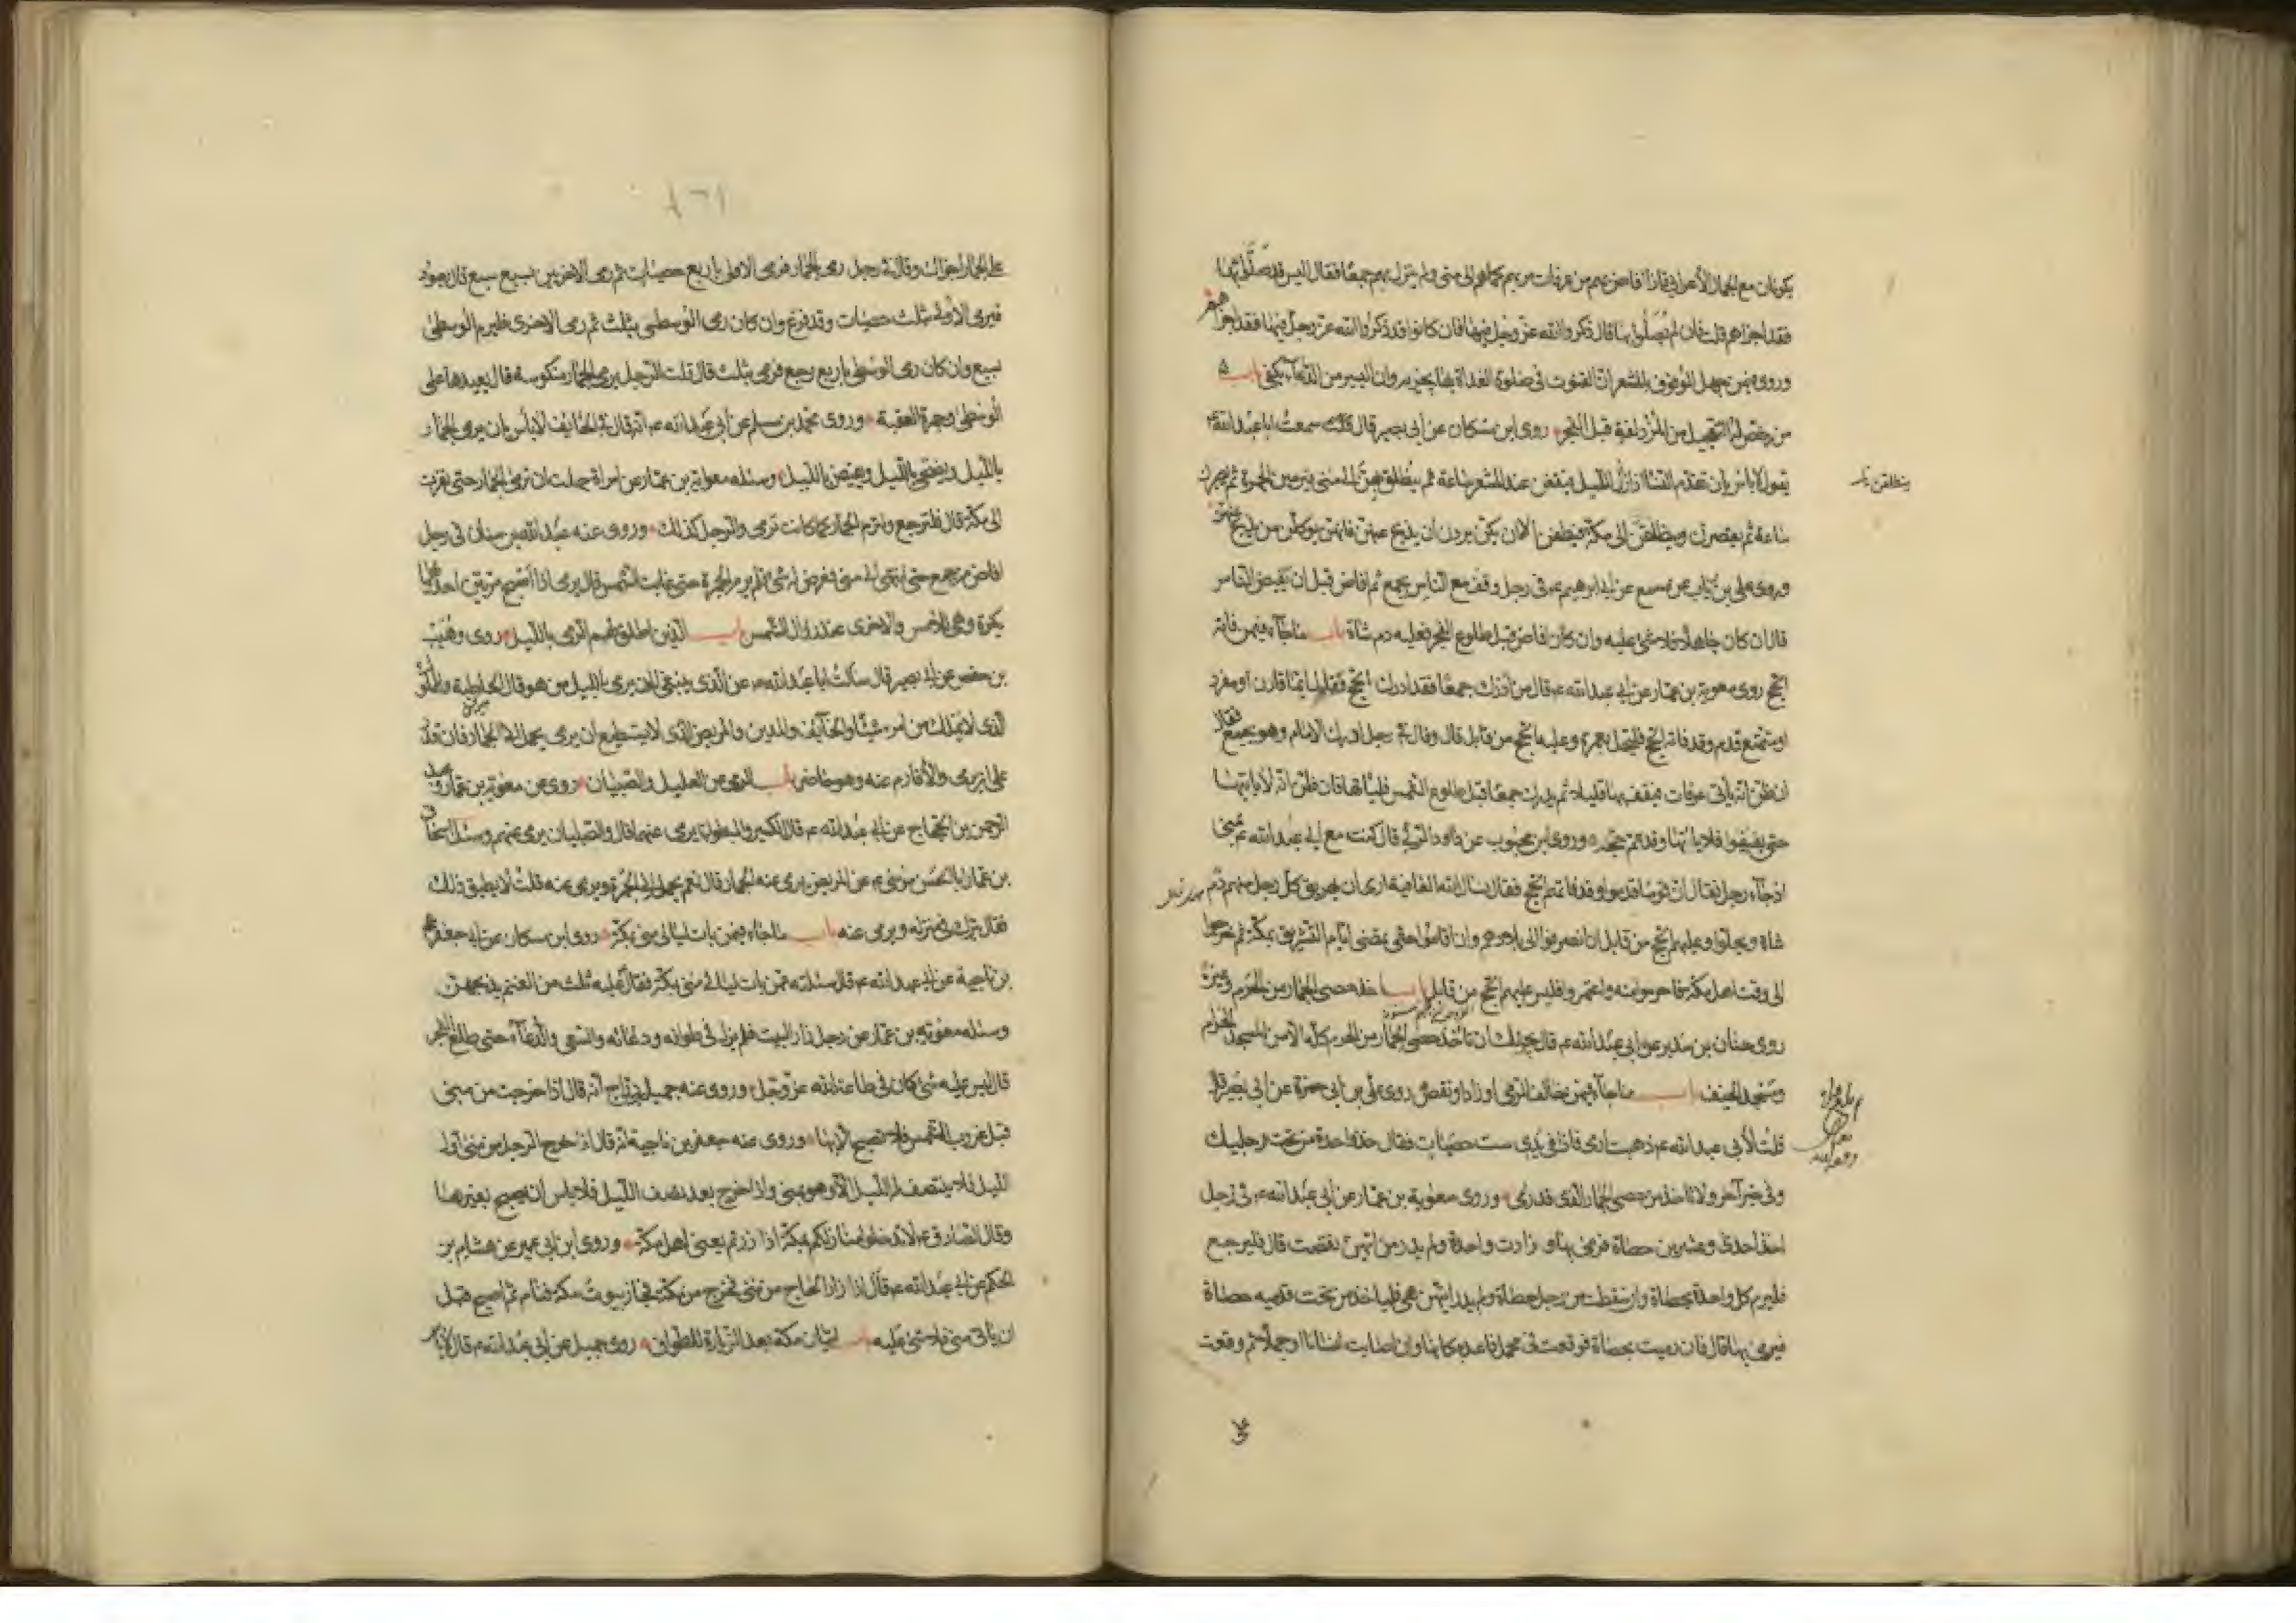 يكونان مع الجمال الأعرابي فاذا افاض بهم من عرفات مر بهم كما هو الى منى ولم ينزل بهم جمعا فقال اليس قد صلوا بها
فقد اجزاهم قلت فان لم يصلوا بها قال ذكروا الله عز وجل فيها فان كانوا قد ذكروا الله عز وجل فيها فقد اجزاهم
وروى فيمن جهل الوقوف بالمشعر ان القنوت في صلوة الغداة بها يجزيه وان اليسير من الدعاء يكفي باب
من رخص له التعجيل من المزدلفة قبل الفجر روى ابن مسكان عن ابي بصير قال سمعت ابا عبد الله ع
يقول لا باس بان تقدم النساء اذا زال الليل فيقفن عند المشعر ساعة ثم ينطلق بهن الى منى فيرمين الجمرة ثم يصبرن
ينطلقن
ساعة ثم يقصرن وينطلقن الى مكة فيطفن الا ان يكن يردن ان يذبح عنهن فانهن يوكلن من يذبح عنهن
وروى علي بن رئاب عن مسمع عن ابي ابرهيم ع في رجل وقف مع الناس بجمع ثم افاض قبل ان يفيض الناس
قال ان كان جاهلا فلا شئ عليه وان كان افاض قبل طلوع الفجر فعليه دم شاة باب ما جاء فيمن فاته
الحج روى معوية بن عمار عن ابي عبد الله ع قال من ادرك جمعا فقد ادرك الحج فقال ايما قارن او مفرد
او متمتع قدم وقد فاته الحج فليحل بعمرة وعليه الحج من قابل قال وقال في رجل ادرك الامام وهو بجمع فقال
ان ظن انه ياتي عرفات فيقف بها قليلا ثم يدرك جمعا قبل طلوع الشمس فلياتها فان ظن انه لا ياتيها
حتى يفيضوا فلا ياتها وقد تم حجه وروى ابن محبوب عن داود الرقي قال كنت مع ابي عبد الله ع بمنى
اذ جاء رجل فقال ان قوما قدموا وقد فاتهم الحج فقال نسال الله العافية ارى ان يهريق كل رجل منهم دم
شاة ويحلوا وعليهم الحج من قابل ان انصرفوا الى بلادهم وان اقاموا حتى يمضى ايام التشريق بمكة ثم خرجوا
الى وقت اهل مكة فاحرموا منه واعتمروا فليس عليهم الحج من قابل باب اخذ حصى الجمار من الحرم وغيره
روى حنان بن سدير عن ابي عبد الله ع قال يجوز لك ان تاخذ حصى الجمار من الحرم كله الا من المسجد الحرام
ومسجد الخيف باب ما جاء فيمن خالف الرمي او زاد او نقص روى علي بن ابي حمزة عن ابي بصير قال
قلت لأبي عبد الله ع ذهبت ارمى فاذا في يدي ست حصيات فقال خذ واحدة من تحت رجليك
وفي خبر آخر ولا تاخذ من حصى الجمار الذي قد رمى وروى معوية بن عمار عن ابي عبد الله ع في رجل
اخذ احدى وعشرين حصاة فرمى بها و زادت واحدة ولم يدر من ايتهن نقصت قال فليرجع
فليرم كل واحدة بحصاة وان سقطت من رجل حصاة ولم يدر ايتهن هي فلياخذ من تحت قدميه حصاة
فيرمي بها قال فان رميت بحصاة فوقعت في محمل فاعد مكانها وان اصابت انسانا او جملا ثم وقعت
على الجمار اجزات وقال في رجل رمى الجمار فرمى الاولى باربع حصيات ثم رمى الاخريين بسبع سبع قال يعود
فيرمى الاولى بثلث حصيات وقد فرغ وان كان رمى الوسطى بثلث ثم رمى الاخرى فليرم الوسطى
بسبع وان كان رمى الوسطى باربع رجع فرمى بثلث قال قلت الرجل يرمى الجمار منكوسة قال يعيدها على
الوسطى وجمرة العقبة وروى محمد بن مسلم عن ابي عبد الله ع انه قال في الخائف لا باس بان يرمى الجمار
بالليل ويضحى بالليل ويفيض بالليل وسئله معوية بن عمار عن امراة جهلت ان ترمى الجمار حتى نفرت
الى مكة قال فلترجع ولترم الجمار كما كانت ترمى والرجل كذلك وروى عنه عبد الله بن سنان في رجل
افاض من جمع حتى انتهى الى منى فعرض له شئ فلم يرم الجمرة حتى غابت الشمس قال يرمى اذا اصبح مرتين احدهما
بكرة وهي للامس والاخرى عند زوال الشمس باب الذين اطلق لهم الرمي بالليل روى وهيب
بن حفص عن ابي بصير قال سالت ابا عبد الله ع عن الذي ينبغى له ان يرمى بالليل من هو قال الحاطبة والمملوك
الذي لا يملك من امره شيئا والخائف والمدين والمريض الذي لا يستطيع ان يرمى يحمل الى الجمار فان قدر
على ان يرمى والا فارم عنه وهو حاضر باب الرمى عن العليل والصبيان روى عن معوية بن عمار وعبد
الرحمن بن الحجاج عن ابي عبد الله ع قال الكسير والمبطون يرمى عنهما قال والصبيان يرمى عنهم وسئل اسحاق
بن عمار ابا الحسن موسى ع عن المريض يرمى عنه الجمار قال نعم يحمل الى الجمرة ويرمى عنه قلت لا يطيق ذلك
فقال يترك في منزله ويرمى عنه باب ما جاء فيمن بات ليالى منى بمكة روى ابن مسكان عن جعفر
بن ناجية عن ابي عبد الله ع قال سئلته عمن بات ليالي منى بمكة فقال عليه ثلث من الغنم يذبحهن
وسئله معوية بن عمار عن رجل زار البيت فلم يزل في طوافه ودعائه والسعي والدعاء حتى طلع الفجر
قال ليس عليه شئ كان في طاعة الله عز وجل وروى عنه جميل بن دراج انه قال اذا خرجت من منى
قبل غروب الشمس فلا تصبح الا بها وروى عنه جعفر بن ناجية انه قال اذا خرج الرجل من منى اول
الليل فلا ينتصف له الليل الا وهو بمنى واذا خرج بعد نصف الليل فلا باس ان يصبح بغيرها
وقال الصادق ع لا تدخلوا منازلكم بمكة اذا زرتم يعني اهل مكة وروى ابن ابي عمير عن هشام بن
الحكم عن ابي عبد الله ع قال اذا زار الحاج من منى فخرج من مكة فجاز بيوت مكة فنام ثم اصبح قبل
ان ياتي منى فلا شئ عليه باب اتيان مكة بعد الزيارة للطواف روى جميل عن ابي عبد الله ع قال لا باس